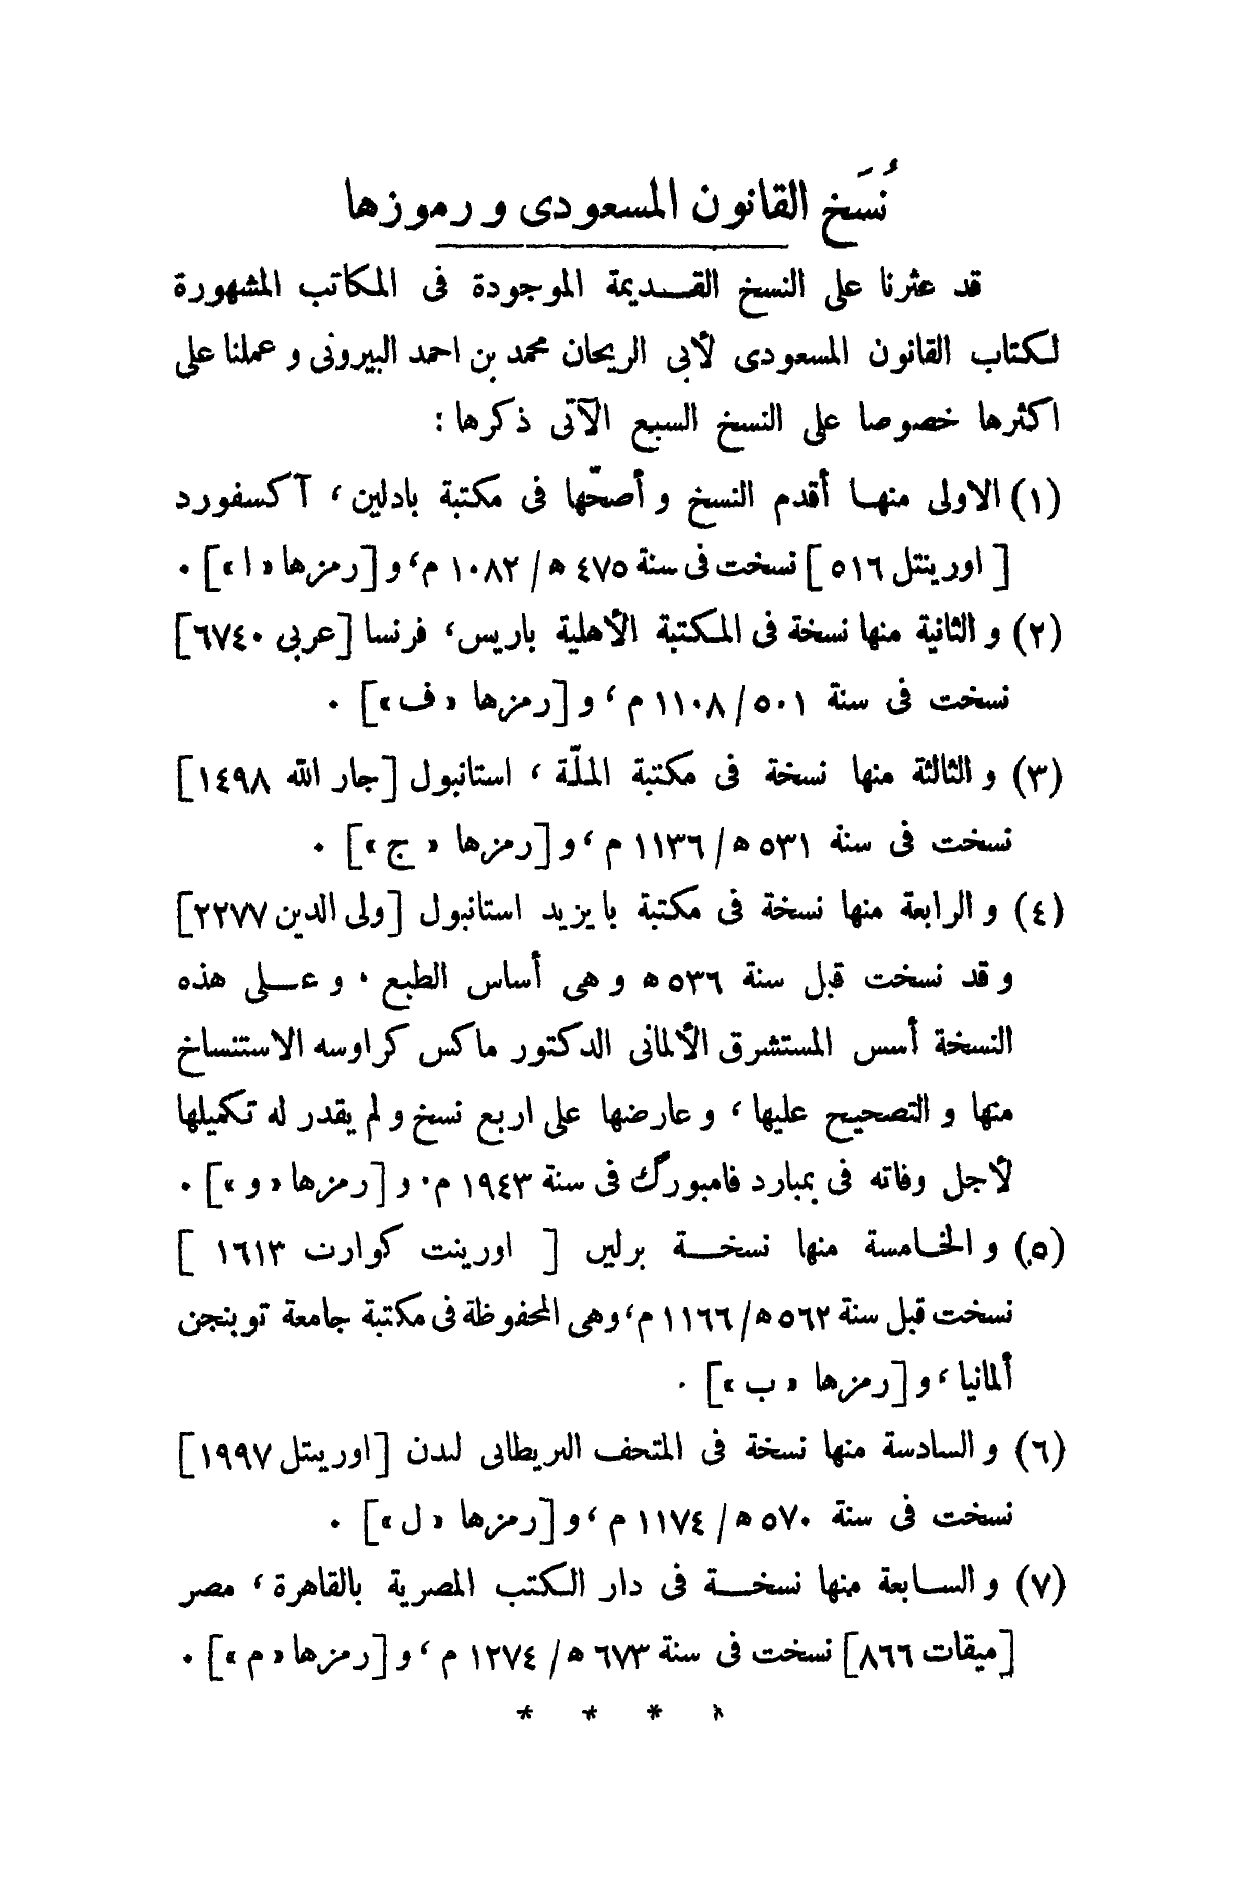 نُسَخ القانون المسعودى و رموزها
قد عثرنا على النسخ القـديمة الموجودة فى المكاتب المشهورة
لكتاب القانون المسعودى لأبى الريحان محمد بن احمد البيرونى و عملنا على
اكثرها خصوصا على النسخ السبع الآتى ذكرها :
(١) الاولى منهـا أقدم النسخ و أصحّها فى مكتبة بادلين ، آكسفورد
[ اورينتل ٥١٦ ] نسخت فى سنة ٤٧٥ ﻫ / ١٠٨٢ م، و [رمزها « ا »] .
(٢) و الثانية منها نسخة فى المكتبة الأهلية باريس، فرنسا [عربى ٦٧٤٠]
نسخت فى سنة ٥٠١ / ١١٠٨ م ، و [رمزها « ف »] .
(٣) و الثالثة منها نسخة فى مكتبة الملّة ، استانبول [جار الله ١٤٩٨]
نسخت فى سنة ٥٣١ ﻫ / ١١٣٦ م ، و [رمزها « ج »] .
(٤) و الرابعة منها نسخة فى مكتبة بايزيد استانبول [ولى الدين ٢٢٧٧]
و قد نسخت قبل سنة ٥٣٦ ﻫ و هى أساس الطبع . و عـلى هذه
النسخة أسس المستشرق الألمانى الدكتور ماكس كراوسه الاستنساخ
منها و التصحيح عليها ، و عارضها على اربع نسخ و لم يقدر له تكميلها
لأجل وفاته فى بمبارد فامبورگ فى سنة ١٩٤٣ م. و [رمزها « و »] .
(٥) و الخـامسة منها نسخـة برلين [ اورينت كوارت ١٦١٣ ]
نسخت قبل سنة ٥٦٢ ﻫ / ١١٦٦ م، وهى المحفوظة فى مكتبة جامعة توبنجن
ألمانيا ، و [رمزها « ب »] .
(٦) و السادسة منها نسخة فى المتحف البريطانى لندن [اورينتل ١٩٩٧]
نسخت فى سنة ٥٧٠ ﻫ / ١١٧٤ م ، و [رمزها « ل »] .
(٧) و السـابعة منها نسخـة فى دار الكتب المصرية بالقاهرة ، مصر
[ميقات ٨٦٦] نسخت فى سنة ٦٧٣ ﻫ / ١٢٧٤ م ، و [رمزها « م »] .
* * * *